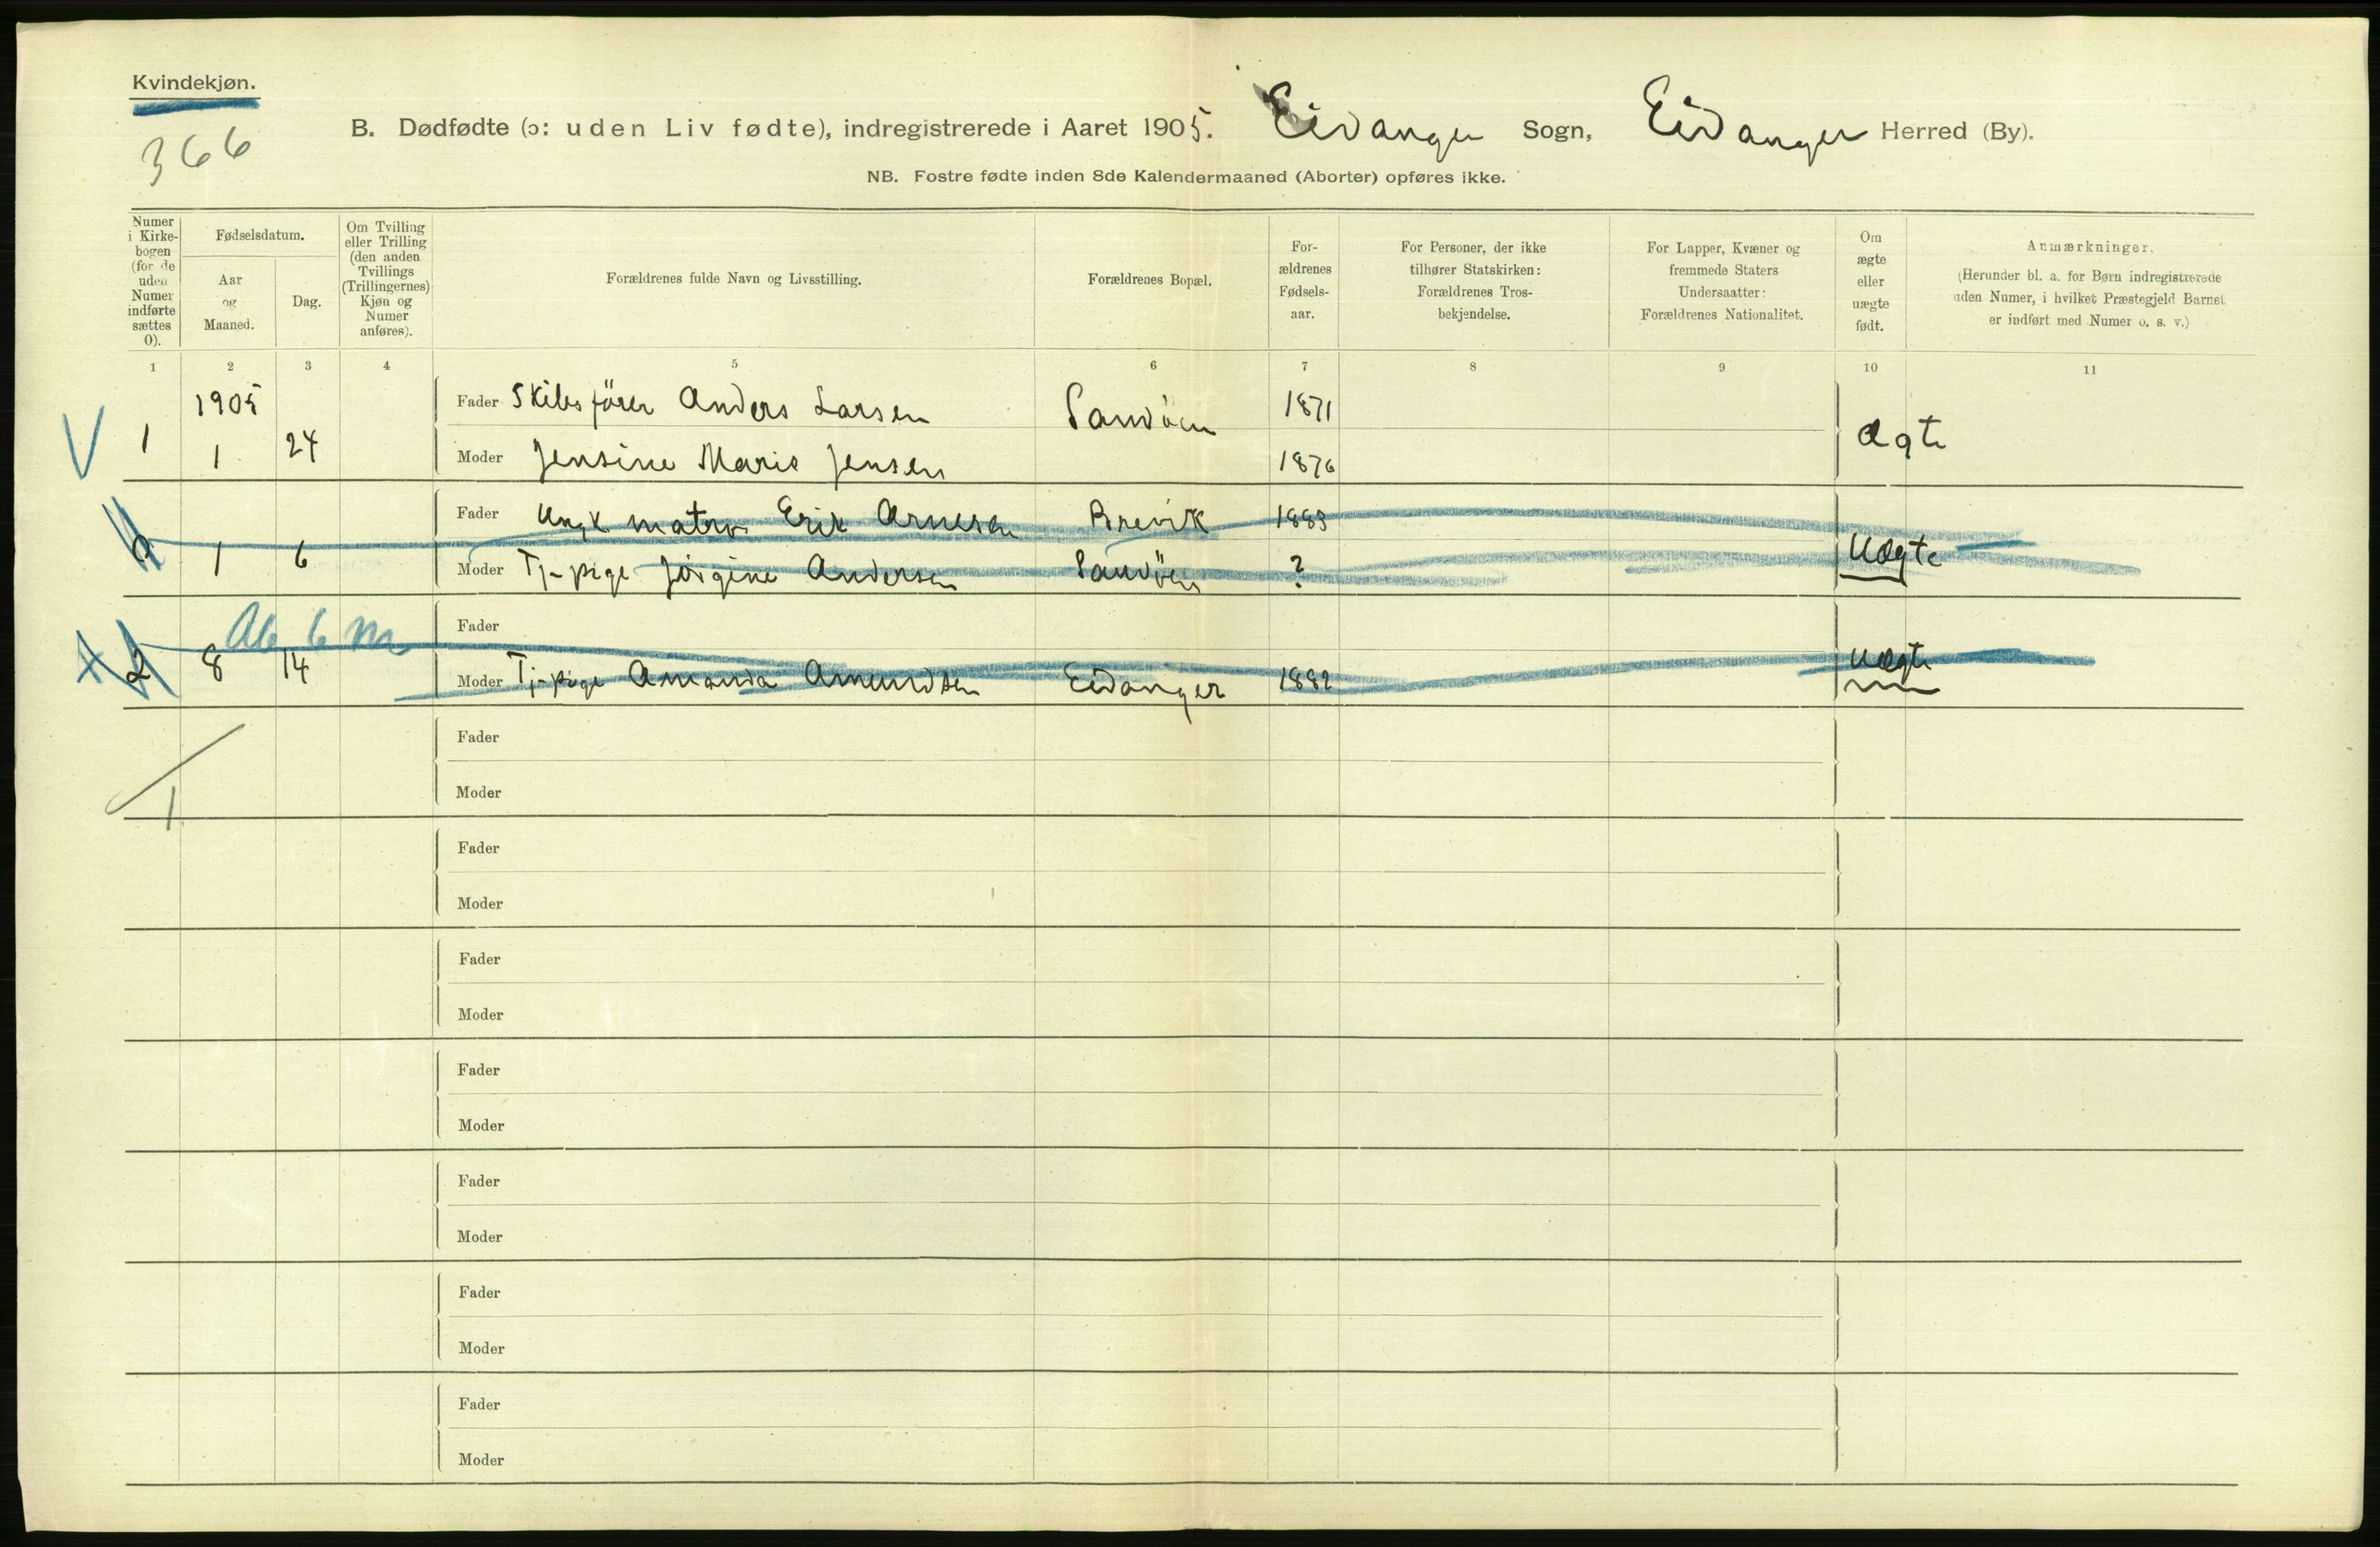 Kvindekjøn.
366
B. Dødfødte (ɔ: uden Liv fødte), indregistrerede i Aaret 1905. Eidanger Sogn, Eidanger Herred (By).
NB. Fostre fødte inden 8de Kalendermaaned (Aborter) opføres ikke.
Numer i Kirkebogen (for de uden Numer indførte sættes 0).
Fødselsdatum.
Aar og Maaned.
Dag.
Om Tvilling eller Trilling (den anden Tvillings (Trillingernes) Kjøn og Numer anføres).
Forældrenes fulde Navn og Livsstilling.
Forældrenes Bopæl.
Forældrenes Fødselsaar.
For Personer, der ikke tilhører Statskirken: Forældrenes Trosbekjendelse.
For Lapper, Kvæner og fremmede Staters Undersaatter: Forældrenes Nationalitet.
Om ægte eller uægte født.
Anmærkninger.
(Herunder bl. a. for Børn indregistrerede uden Numer, i hvilket Præstegjeld Barnet er indført med Numer o. s. v.)
1 2 3 4 5 6 7 8 9 10 11
1905
Fader Skibsfører Anders Larsen Sandöen 1871
V 1 1 24 Ægte
Moder Jensine Marie Jensen 1876
Fader Ungk matros Erik Arnesen Brevik 1883
1 6 Uægte
Moder Tj-pige Jörgine Andersen Sandöen ?
Ab 6 M
Fader
2 8 14 Uægte
Moder Tj-pige Amanda Amundsen Eidanger 1882
Fader
Moder
1
Fader
Moder
Fader
Moder
Fader
Moder
Fader
Moder
Fader
Moder
Fader
Moder